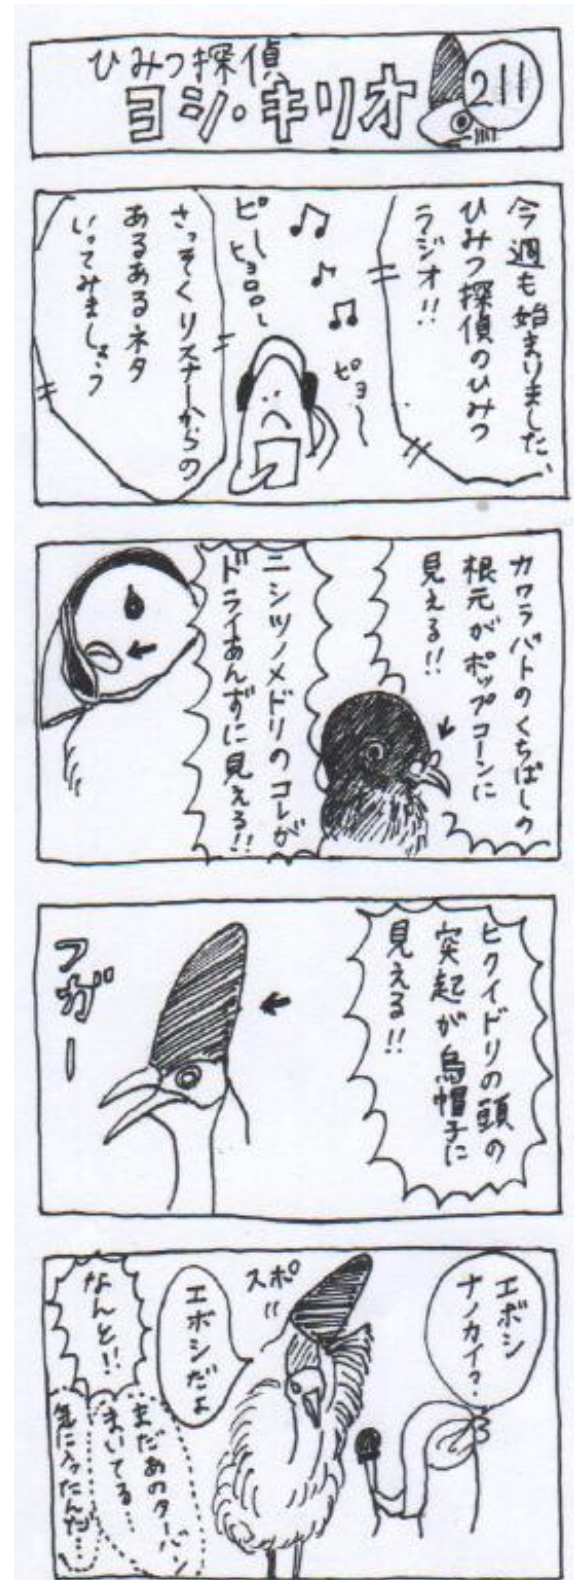 ひみつ探偵
ヨシ・キリオ
211
今週も始まりました、
ひみつ探偵のひみつ
ラジオ!!
ピーヒョロロー
ピョ〜
さっそくリスナーからの
あるあるネタ
いってみましょう
カワラバトのくちばしの
根元がポップコーンに
見える!!
ニシツノメドリのコレが
ドライあんずに見える!!
ヒクイドリの頭の
突起が烏帽子に
見える!!
フガー
エボシ
ナノカイ?
スポ
エボシだよ
なんと!!
まだあのターバン
まいてる…
気に入ったんだ…